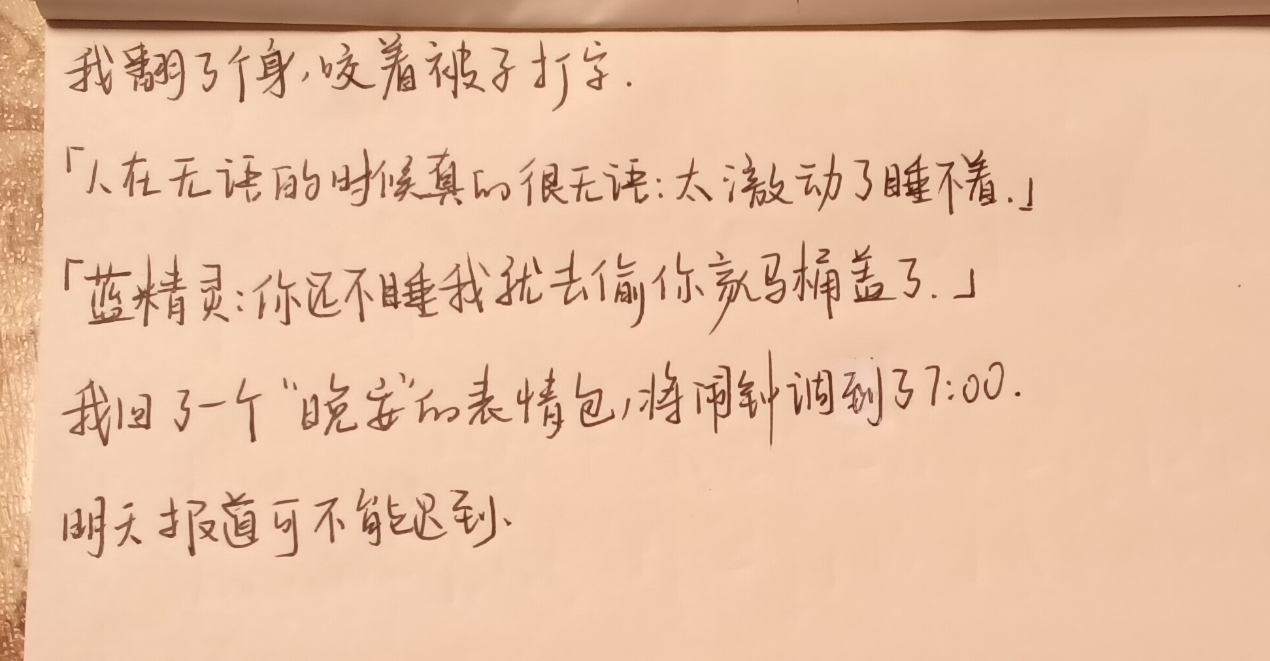 我翻了个身,咬着被子打字.
「人在无语的时候真的很无语:太激动了睡不着.」
「蓝精灵:你还不睡我就去偷你家马桶盖了.」
我回了一个“晚安”的表情包,将闹钟调到了7:00.
明天报道可不能迟到、